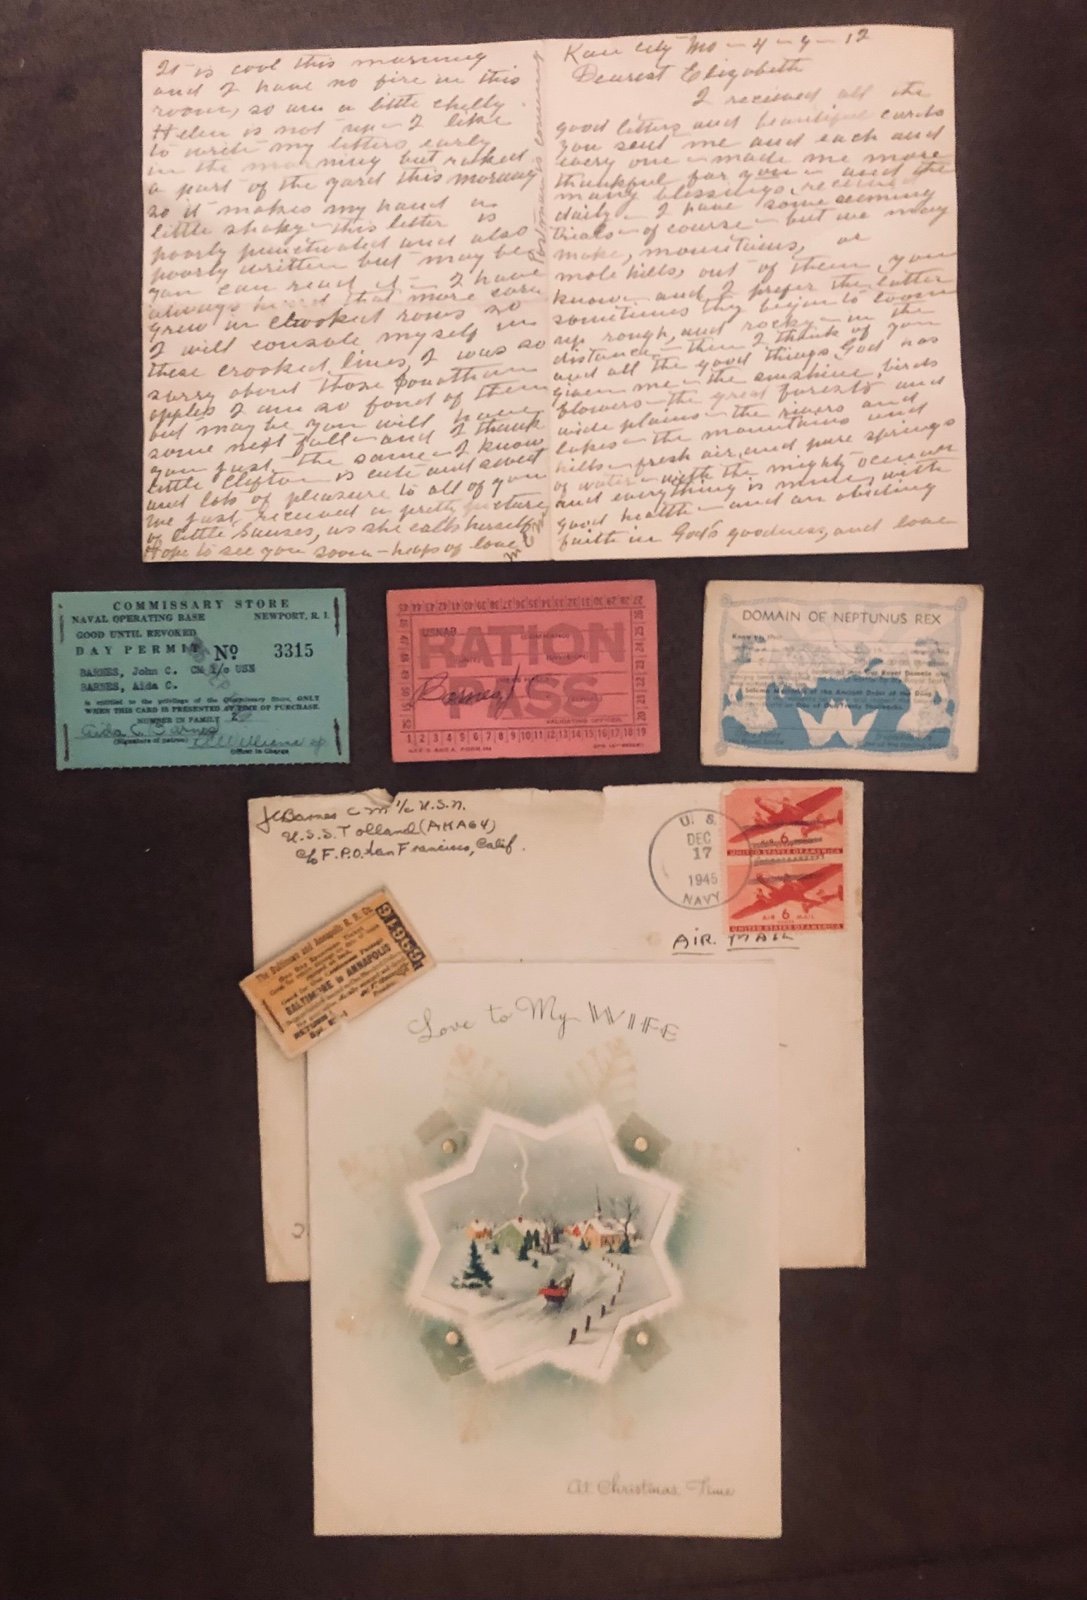 Kan City Mo - 4 - 9 - 12
Dearest Elizabeth
I received all the
good letters and beautiful cards
you sent me and each and
every one - made me more
thankful for you - and the
many blessings, received
daily - I have some seeming
trials - of course - but we may
make, mountains, or
mole hills, out of them, you
know - and I prefer the latter
sometimes they begin to loom
up rough, and rocky - in the
distance - then I think of you
and all the good things God has
given me - the sunshine, birds
flowers - the great forests and
wide plains - the rivers and
lakes - the mountains and
hills - fresh air, and pure springs
of water - with the mighty ocean
and everything is mine, with
good health - and an abiding
faith in God's goodness, and love
It is cool this morning
and I have no fire in this
room, so am a little chilly.
Helen is not up - I like
to write my letters early
in the morning but raked
a part of the yard this morning
so it makes my hand a
little shaky - this letter is
poorly punctuated and also
poorly written but may be
you can read it - I have
always heard that more corn
grew in crooked rows so
I will console myself in
these crooked lines, I was so
sorry about those Jonathan
apples I am so fond of them
but may be you will have
some next fall - and I thank
you just the same - I know
little Clifton is cute and sweet
and lots of pleasure to all of you
We just received a pretty picture
of little Sauses, as she calls herself
Hope to see you soon - heaps of love
Postman is coming
COMMISSARY STORE
NAVAL OPERATING BASE NEWPORT, R. I.
GOOD UNTIL REVOKED
DAY PERMIT No 3315
BARNES, John C. CM 1/c USN
BARNES, Aida C.
is entitled to the privilege of the Commissary Store, ONLY
WHEN THIS CARD IS PRESENTED AT TIME OF PURCHASE.
NUMBER IN FAMILY 2
Aida C. Barnes
(Signature of patron) Officer in Charge
USNAB
RATION
PASS
Barnes
VALIDATING OFFICER
1 2 3 4 5 6 7 8 9 10 11 12 13 14 15 16 17 18 19
DOMAIN OF NEPTUNUS REX
JCBarnes CM 1/c U.S.N.
U.S.S. Tolland (AKA64)
c/o F.P.O. San Francisco, Calif.
U. S.
DEC
17
1945
NAVY
AIR 6 MAIL
UNITED STATES OF AMERICA
AIR 6 MAIL
UNITED STATES OF AMERICA
AIR MAIL
The Baltimore and Annapolis R. R. Co.
BALTIMORE to ANNAPOLIS
Love to My WIFE
At Christmas Time